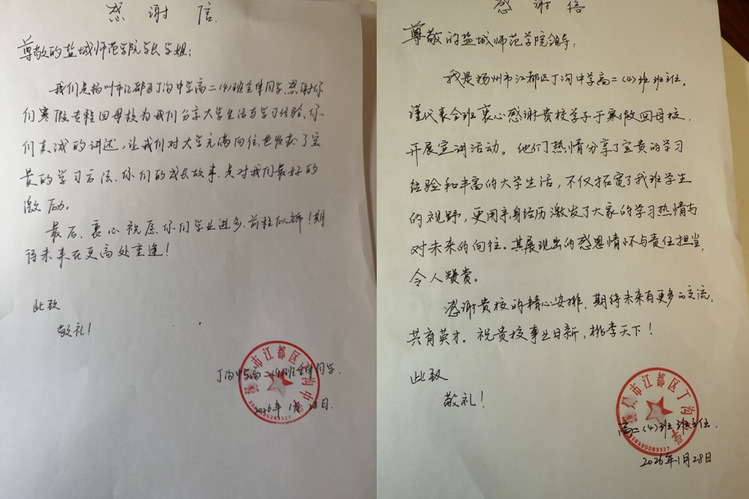 感谢信
尊敬的盐城师范学院学长学姐:
我们是扬州市江都区丁沟中学高二(4)班全体同学,感谢你
们寒假专程回母校为我们分享大学生活与学习经验。你
们真诚的讲述,让我们对大学充满向往,也收获了宝
贵的学习方法。你们的成长故事,是对我们最好的
激励。
最后,衷心祝愿你们学业进步,前程似锦!期
待未来在更高处重逢!
此致
敬礼!
丁沟中学高二(4)班全体同学
2026年1月28日
感谢信
尊敬的盐城师范学院领导:
我是扬州市江都区丁沟中学高二(4)班班主任。
谨代表全班衷心感谢贵校学子于寒假回母校
开展宣讲活动。他们热情分享了宝贵的学习
经验和丰富的大学生活,不仅拓宽了我班学生
的视野,更用亲身经历激发了大家的学习热情与
对未来的向往。其展现出的感恩情怀与责任担当,
令人赞赏。
感谢贵校的精心安排,期待未来有更多的交流,
共育英才。祝贵校事业日新,桃李天下!
此致
敬礼!
市江都区丁沟中
高二(4)班班主任
2026年1月28日